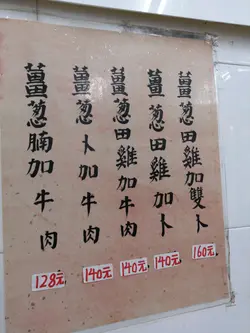 薑葱田雞加雙卜
160元
薑葱田雞加卜
140元
薑葱田雞加牛肉
140元
薑葱卜加牛肉
140元
薑葱腩加牛肉
128元